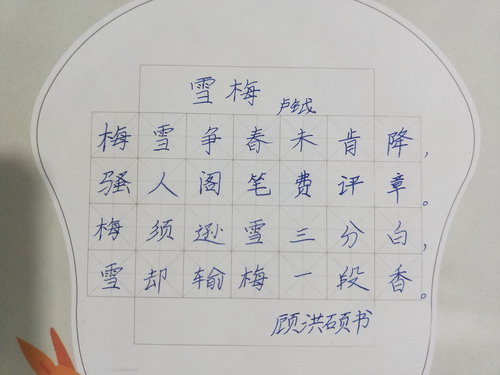 雪梅
卢钺
梅雪争春未肯降，
骚人阁笔费评章。
梅须逊雪三分白，
雪却输梅一段香。
顾洪硕书